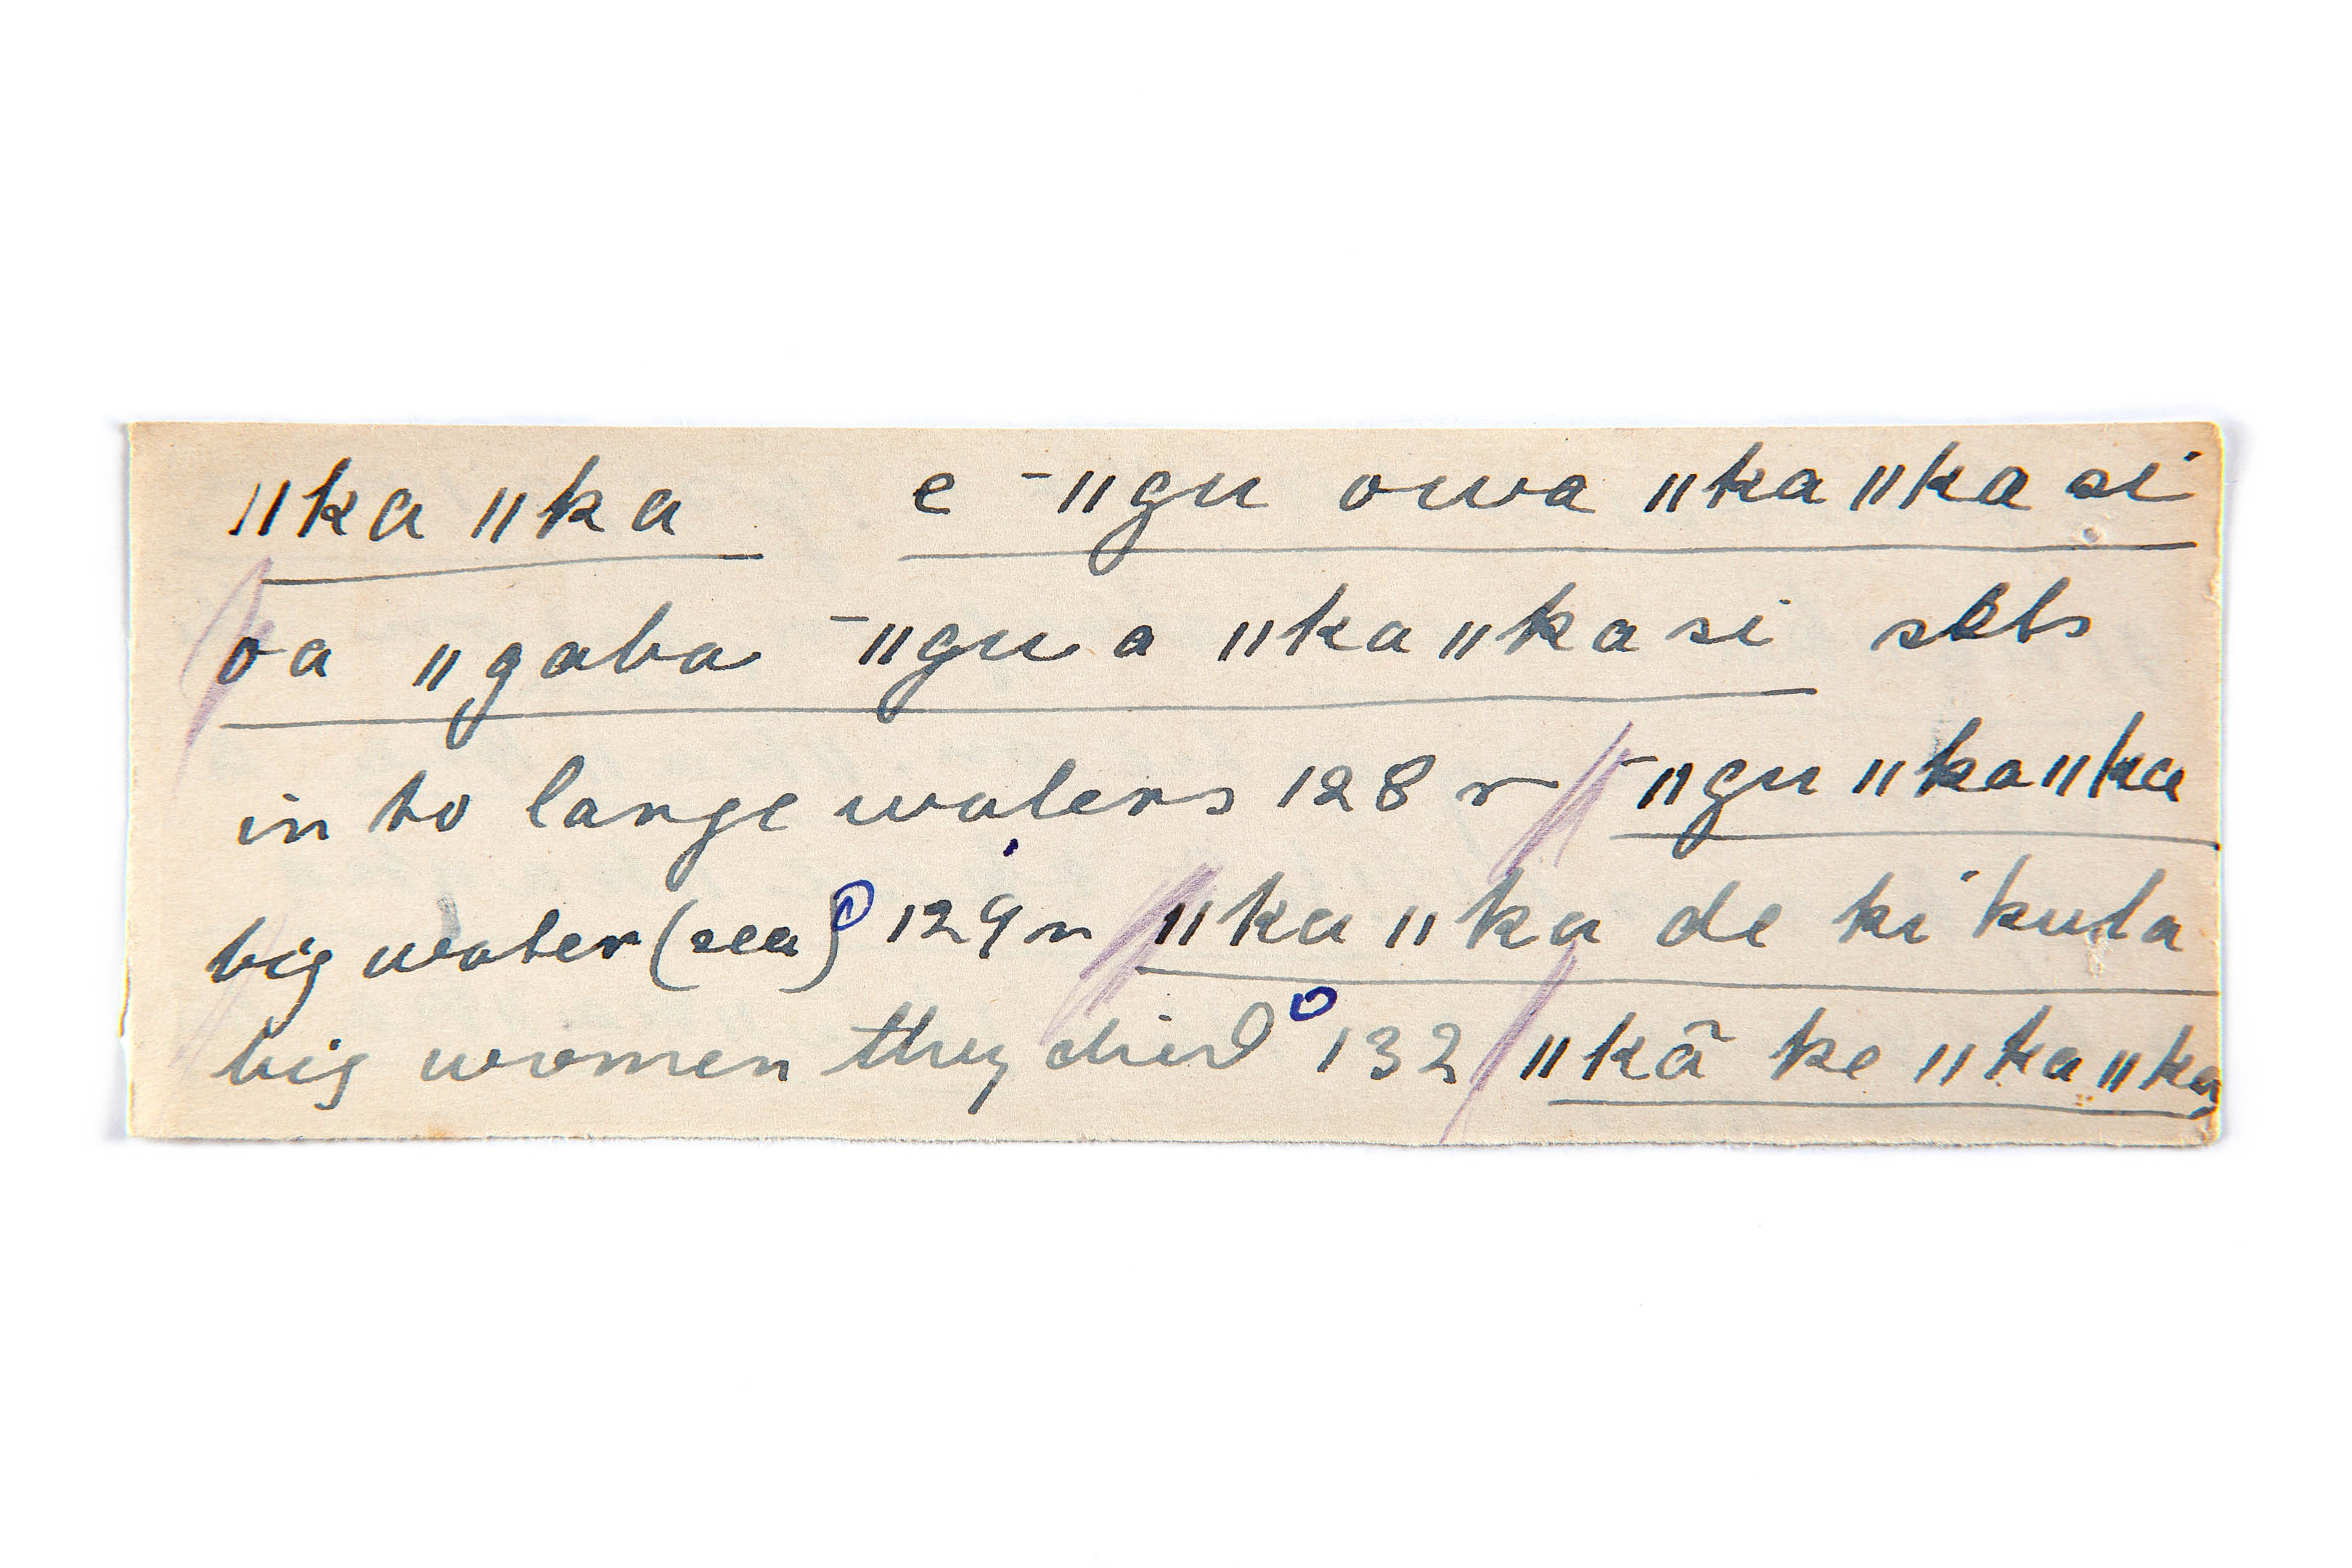 ǁka ǁka e -ǁgu owa ǁka ǁka si
oa ǁgaba -ǁgu a ǁka ǁka si sets
in to large waters 128 r -ǁgu ǁka ǁka
big water (sea) 129 r ǁka ǁka de ki kuta
big women they died 132 ǁkā ke ǁka ǁka